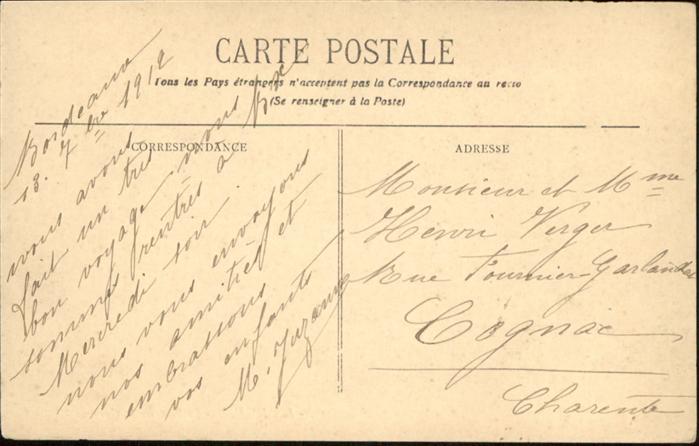 CARTE POSTALE
Tous les Pays étrangers n'acceptent pas la Correspondance au recto
(Se renseigner à la Poste)
CORRESPONDANCE
Bordeaux
13. 7bre 1912
nous avons
fait un très
bon voyage. nous
sommes rentrés à Bx
Mercredi soir.
nous vous envoyons
nos amitiés et
embrassons
vos enfants
M.
ADRESSE
Monsieur et Mme
Henri Verger
Rue Fournier-Garlandat
Cognac
Charente